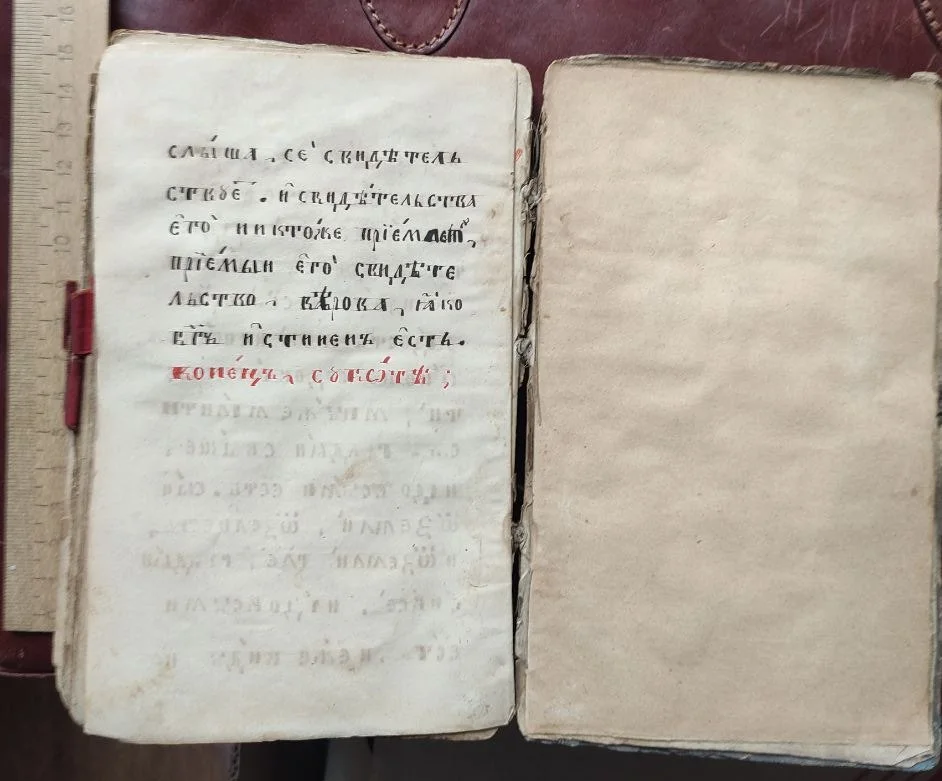 слы́ша, се̏ свидѣ́тель
ствꙋе҆т̾. и҆ свидѣ́тельства
є҆гѡ̀ никто́же прїе́млетъ,
прїе́мыи є҆го̀ свидѣ́те
льство, вѣ́рова, ꙗ҆́ко
бг҃ъ и҆́стиненъ є҆́сть.
коне́цъ, сꙋббѡ́тѣ;